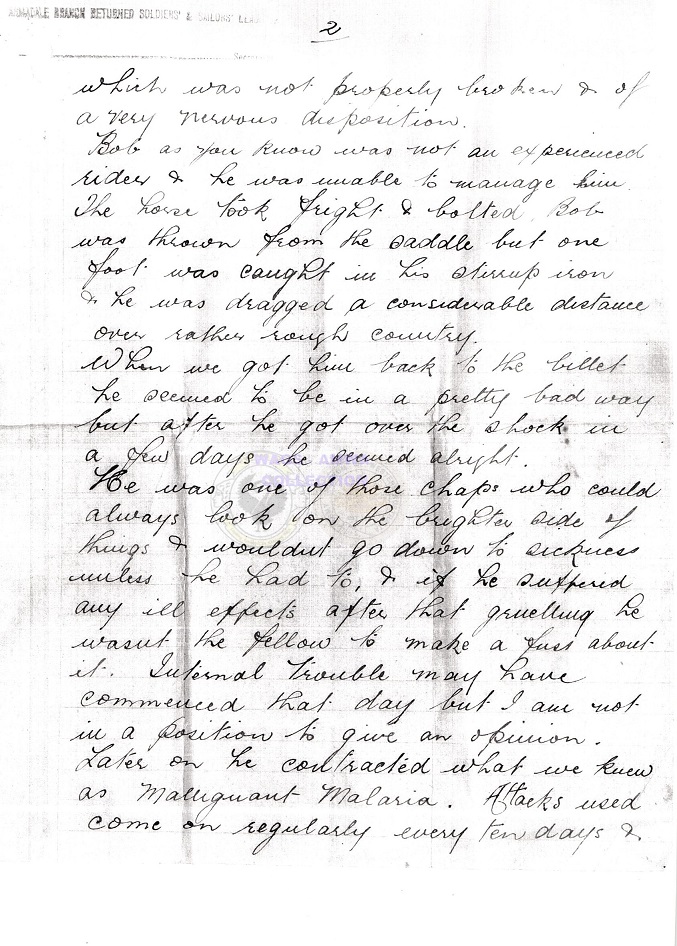 ARMADALE BRANCH RETURNED SOLDIERS' & SAILORS'
2
which was not properly broken & of
a very nervous disposition.
Bob as you know was not an experienced
rider & he was unable to manage him.
The horse took fright & bolted. Bob
was thrown from the saddle but one
foot was caught in his stirrup iron
& he was dragged a considerable distance
over rather rough country.
When we got him back to the billet
he seemed to be in a pretty bad way
but after he got over the shock in
a few days he seemed alright.
He was one of those chaps who could
always look on the brighter side of
things & wouldnt go down to sickness
unless he had to, & if he suffered
any ill effects after that gruelling he
wasnt the fellow to make a fuss about
it. Internal trouble may have
commenced that day but I am not
in a position to give an opinion.
Later on he contracted what we knew
as Mallignant Malaria. Attacks used
come on regularly every ten days &